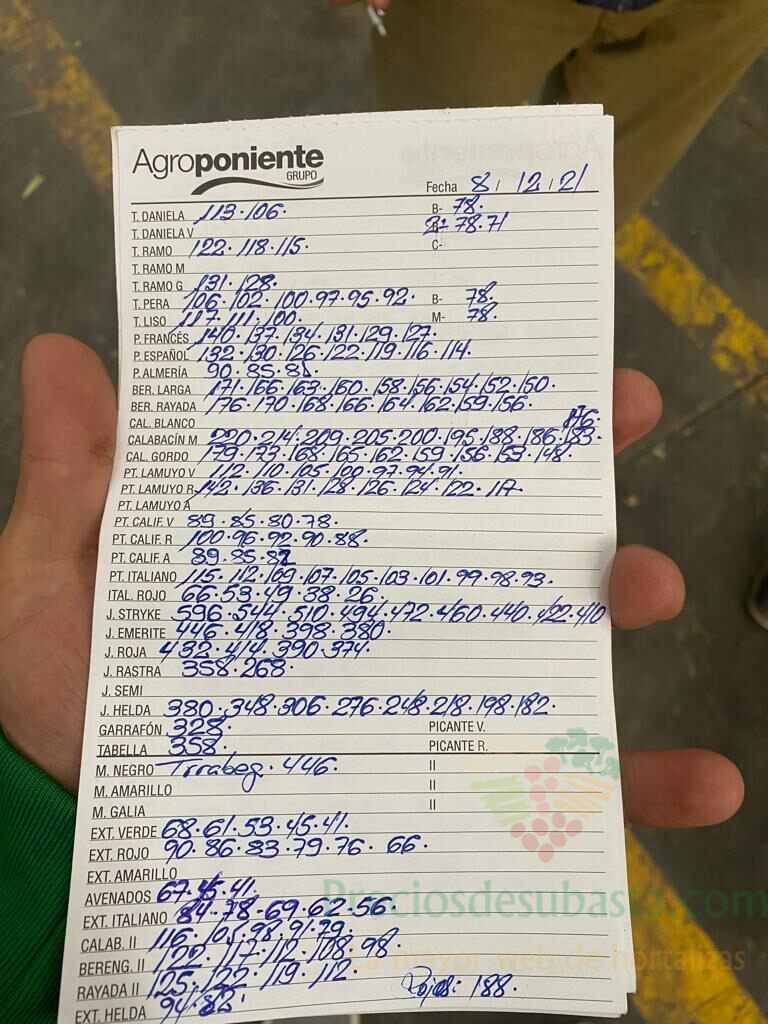 Agroponiente
GRUPO
Fecha 8 / 12 / 21
T. DANIELA 113·106· B- 78·
T. DANIELA V 78·71
T. RAMO 122·118·115· C-
T. RAMO M
T. RAMO G 131·128·
T. PERA 106·102·100·97·95·92· B- 78·
T. LISO 117·111·100· M- 78·
P. FRANCÉS 140·137·134·131·129·127·
P. ESPAÑOL 132·130·126·122·119·116·114·
P. ALMERÍA 90·85·81·
BER. LARGA 171·166·163·160·158·156·154·152·150·
BER. RAYADA 176·170·168·166·164·162·159·156·
CAL. BLANCO 176·
CALABACÍN M 220·214·209·205·200·195·188·186·183·
CAL. GORDO 179·173·168·165·162·159·156·153·148·
PT. LAMUYO V 112·110·105·100·97·94·91·
PT. LAMUYO R 142·136·131·128·126·124·122·117
PT. LAMUYO A
PT. CALIF. V 89·85·80·78·
PT. CALIF. R 100·96·92·90·88·
PT. CALIF. A 89·85·82
PT. ITALIANO 115·112·109·107·105·103·101·99·98·93·
ITAL. ROJO 66·53·49·38·26·
J. STRYKE 596·544·510·494·472·460·440·422·410
J. EMERITE 446·418·398·380·
J. ROJA 432·414·390·374·
J. RASTRA 358·268·
J. SEMI
J. HELDA 380·348·306·276·248·218·198·182·
GARRAFÓN 328· PICANTE V.
TABELLA 358· PICANTE R.
M. NEGRO 446· II
M. AMARILLO II
M. GALIA II
EXT. VERDE 68·61·53·45·41·
EXT. ROJO 90·86·83·79·76· 66·
EXT. AMARILLO
AVENADOS 67·45·41·
EXT. ITALIANO 84·78·69·62·56·
CALAB. II 116·105·98·91·79·
BERENG. II 122·117·112·108·98·
RAYADA II 125·122·119·112·
EXT. HELDA 94·82· Rojos: 188·
Preciosdesubasta.com
La mayor web de hortalizas